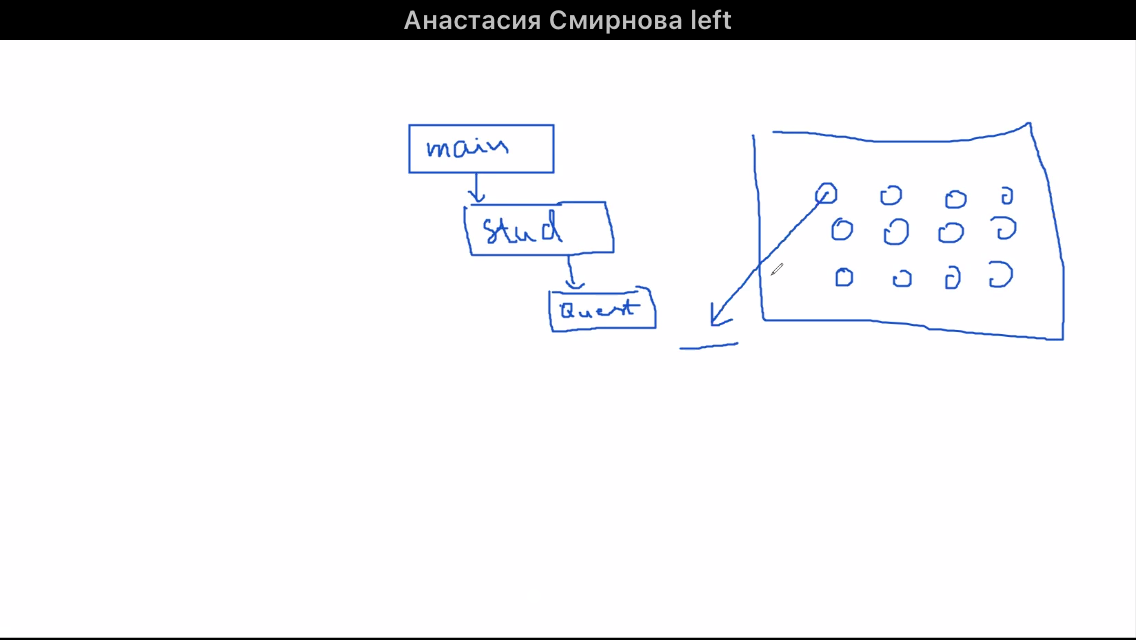 Анастасия Смирнова left
main
Stud
Quest